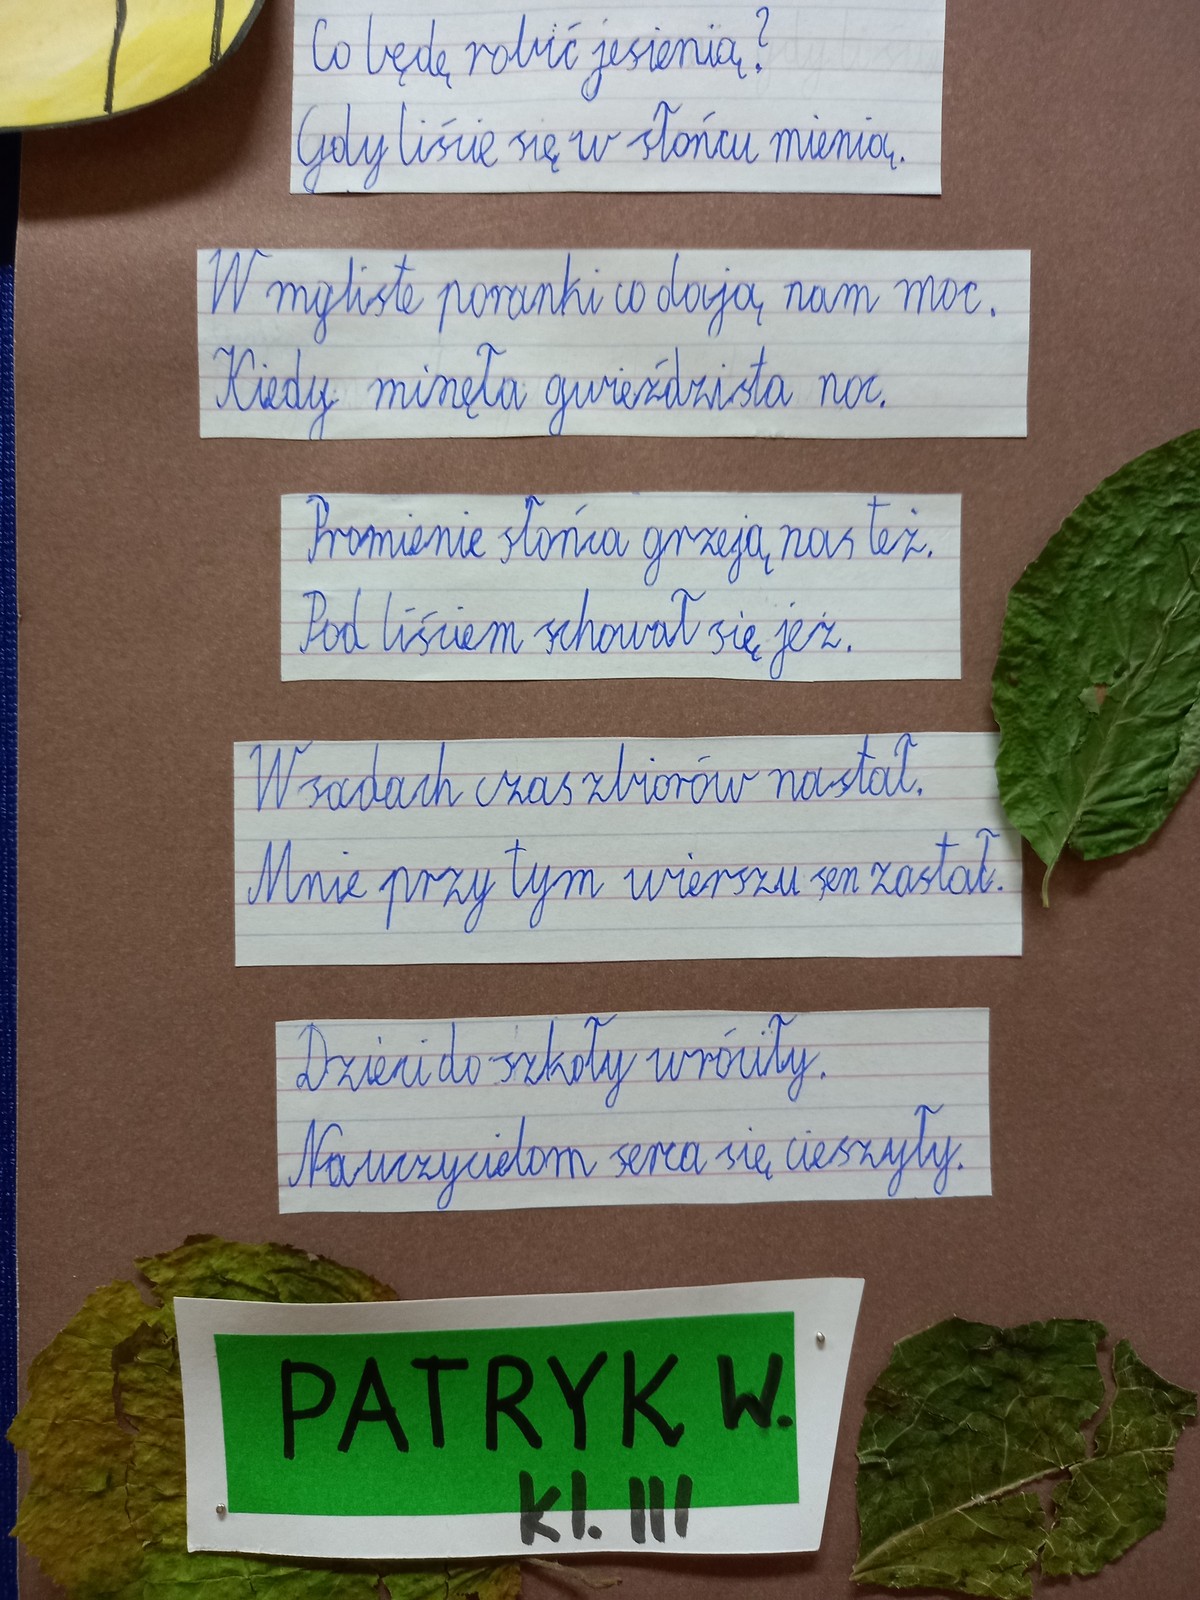 Co będę robić jesienią?
Gdy liście się w słońcu mienią.
W mgliste poranki co dają nam moc.
Kiedy minęła gwieździsta noc.
Promienie słońca grzeją nas też.
Pod liściem schował się jeż.
W sadach czas zbiorów nastał.
Mnie przy tym wierszu sen zastał.
Dzieci do szkoły wróciły.
Nauczycielom serca się cieszyły.
PATRYK W.
kl. III